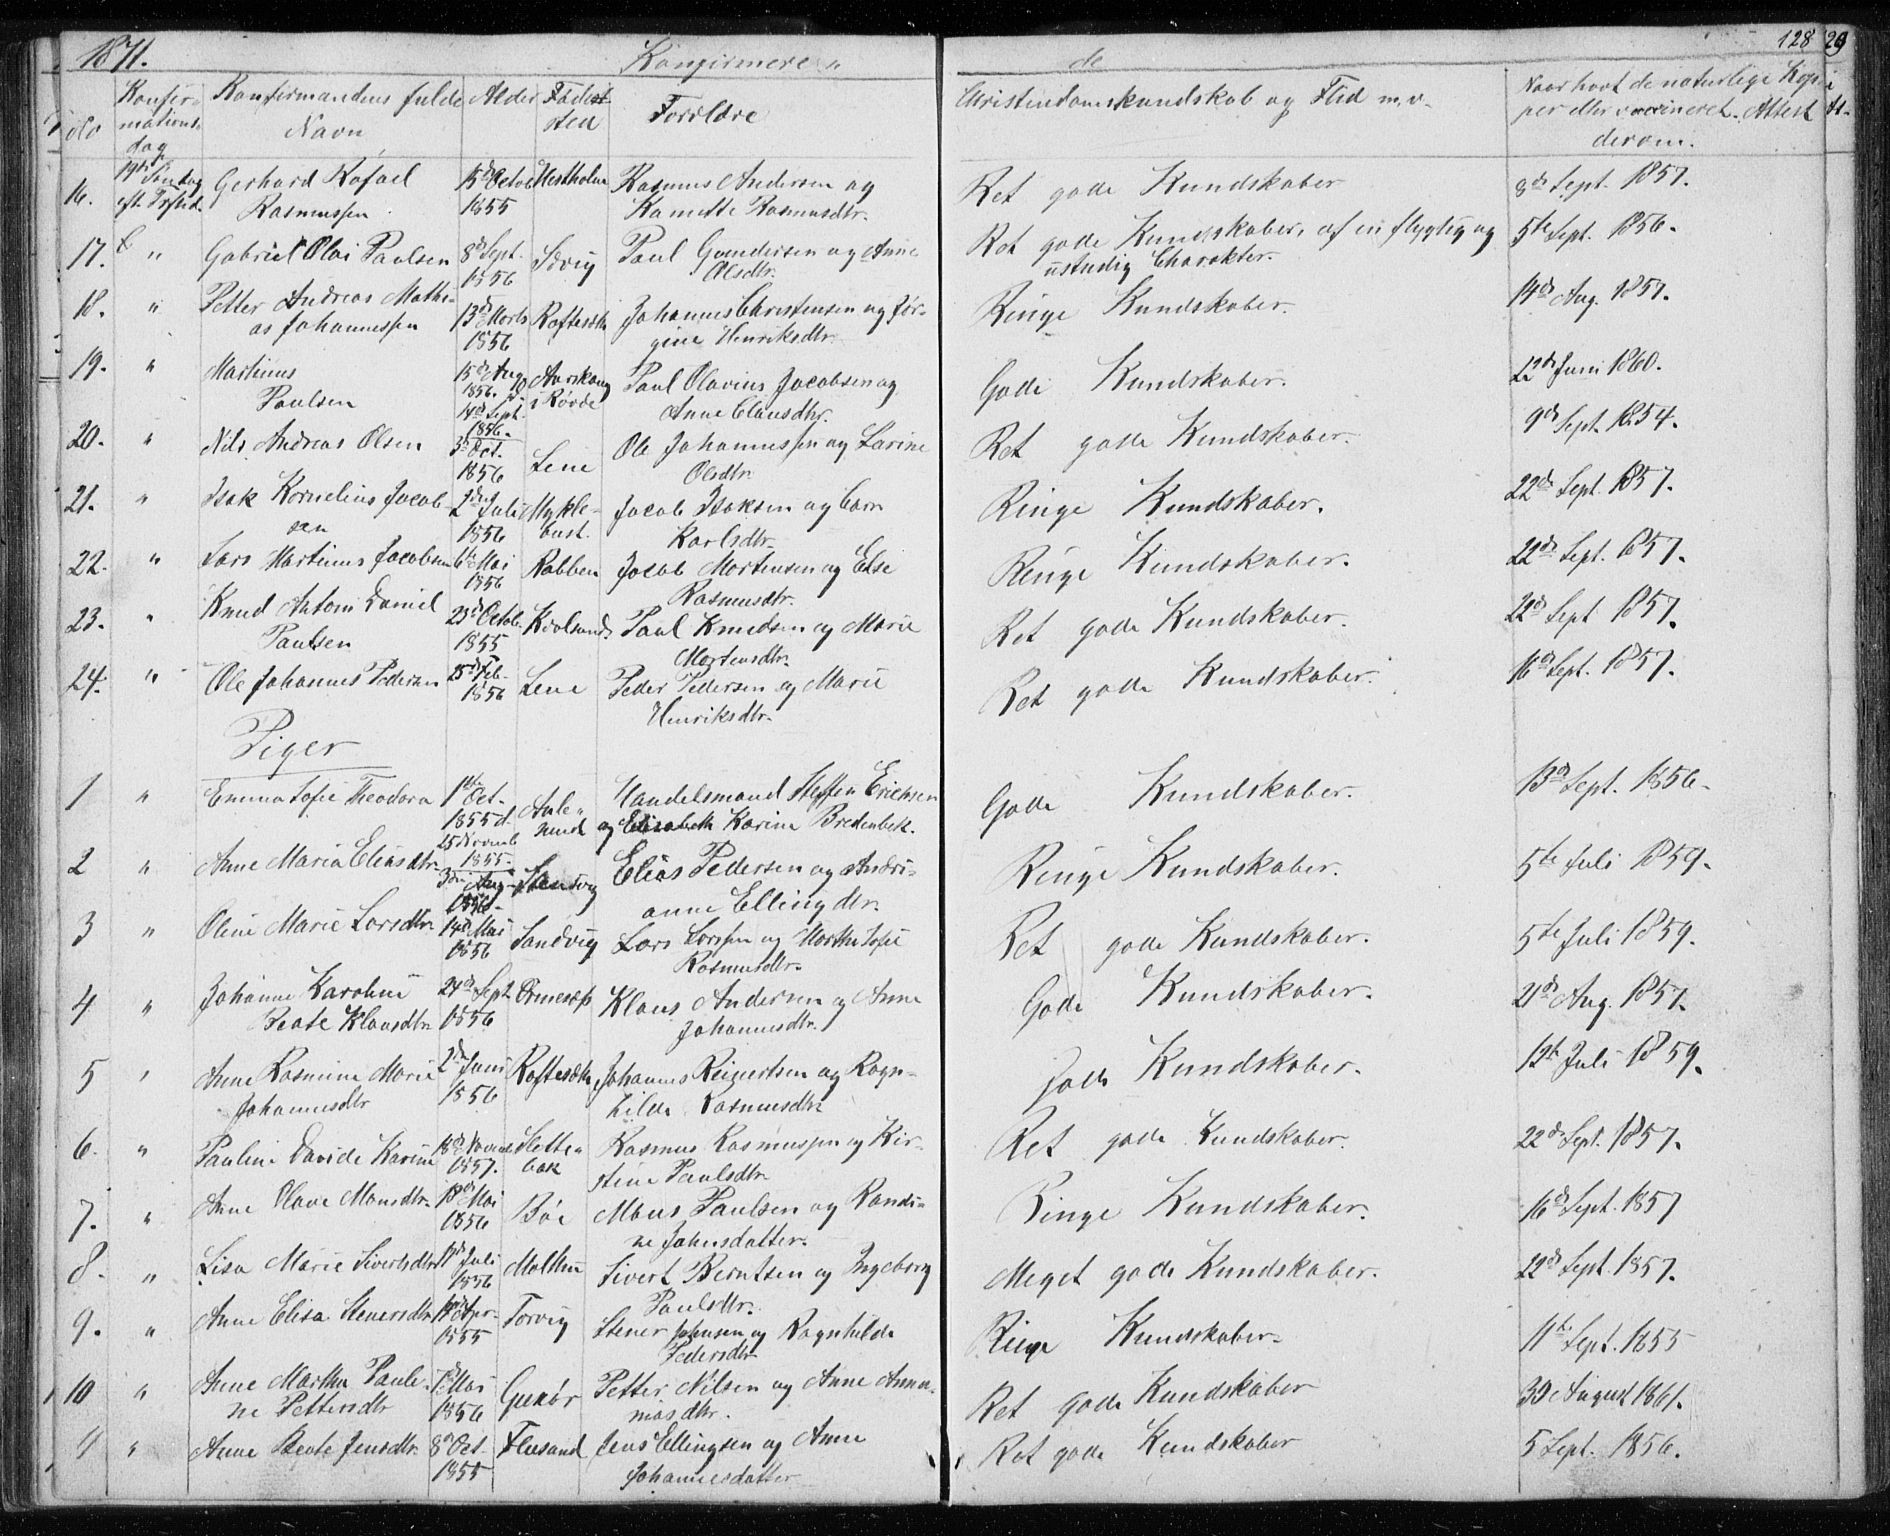 1871. Konfirmere- de 128
No Konfir-mations-dag Konfirmandens fulde Navn Alder Fødested Forældre Christendomskundskab og Flid m.v. Naar havt de naturlige Kopper eller vaccineret. Attest derom.
16. 19de Søndag eft. Trefold. Gerhard Rafael Rasmussen 15de Octob 1855 Hestholm Rasmus Andersen og Ramette Rasmusdtr. Ret gode Kundskaber 8de Sept. 1857.
17. " Gabriel Olai Paulsen 8de Sept. 1856 Sævig Paul Gundersen og Anne Olsdtr. Ret gode Kundskaber, af en flygtig og ustadig Charakter. 5te Sept. 1856.
18. " Petter Andreas Mathias Johannessen 13de Marts 1856 Raftesæth Johannes Christensen og Jørgine Henriksdtr. Ringe Kundskaber. 14de Aug. 1857.
19. " Martinus Paulsen 15de Aug 1856. d. 14de Sept. 1856. Aarskoug i Røvde Paul Olavius Jacobsen og Anne Clausdtr. Gode Kundskaber. 12de Juni 1860.
20. " Nils Andreas Olsen 3de Oct. 1856 Leine Ole Johannessen og Larine Olsdtr. Ret gode Kundskaber. 9de Sept. 1854.
21. " Isak Kornelius Jacobsen 2den Juli 1856 Myklebust. Jacob Isaksen og Caren Karlsdtr. Ringe Kundskaber. 22de Sept. 1857.
22. " Lars Martinus Jacobsen 6te Mai 1856 Rabben Jacob Mortensen og Else Rasmusdtr. Ringe Kundskaber. 22de Sept. 1857.
23. " Knud Antoni Daniel Paulsen 23de Octob. 1855 Kvalsund Paul Knudsen og Marie Mortensdtr. Ret gode Kundskaber. 22de Sept 1857.
24. " Ole Johannes Pedersen 25de Feb. 1856 Leine Peder Pedersen og Marie Henriksdtr. Ret gode Kundskaber. 16de Sept. 1857.
Piger
1 " Emma Sofie Theodora 1ste Oct. 1855 d. 25 Novemb 1855. Aalesund Handelsmand Steffen Erichsen og Elisabeth Karine Bredenbek. Gode Kundskaber. 13de Sept. 1856.
2 " Anne Maria Eliasdtr. 3die Aug. 1856. Stensvg Elias Pedersen og Andrianne Ellingdtr. Ringe Kundskaber. 5te Juli 1859.
3 " Oline Marie Larsdtr. 14de Mai 1856 Sandvig Lars Larssen og Marthe Sofie Rasmusdtr. Ret gode Kundskaber. 5te Juli 1859.
4 " Johanne Karoline Beate Klausdtr. 24de Sept 1856 Klaus Andersen og Anne Johannesdtr. Gode Kundskaber. 21de Aug. 1857.
5 " Anne Rasmine Marie Johannesdtr 2den Juni 1856 Raftesæth Johannes Reigertsen og Ragnhilde Rasmusdtr Gode Kundskaber. 12te Juli 1859.
6. " Pauline Davide Karine 18de Novemb 1857. Slettebak Rasmus Rasmussen og Kirstine Paulsdtr. Ret gode Kundskaber. 22de Sept. 1857.
7. " Anne Olave Monsdtr. 18de Mai 1856 Bøe Mons Paulsen og Randine Johnsdatter. Ringe Kundskaber. 16de Sept. 1857
8. " Lisa Marie Sivertsdtr 17de Juli 1856 Molthu Sivert Berntsen og Ingeborg Paulsdtr. Meget gode Kundskaber. 22de Sept. 1857.
9. " Anne Elisa Stenersdtr 1855 Torvig Stener Johnsen og Ragnhilde Pedersdtr Ringe Kundskaber. 11te Sept. 1855
10 " Anne Martha Pauline Pettersdtr 1ste Mai 1856 Gurskør Petter Nilsen og Anne Annaniasdtr. Ret gode Kundskaber 30 August 1861.
" Anne Beate Jensdtr. 8de Oct. 1855 Flusund Jens Ellingsen og Anne Johannesdatter Ret gode Kundskaber 5 Sept. 1856.